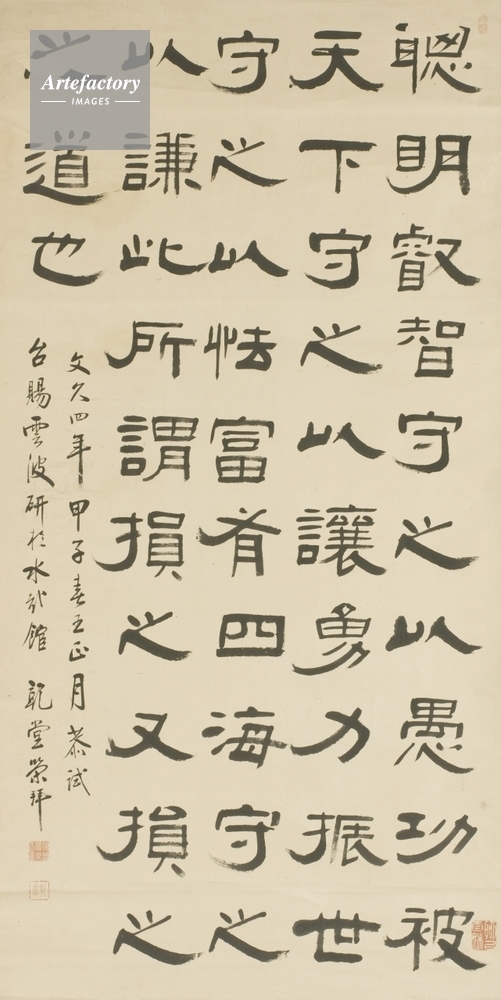 聰明叡智守之以愚功被
天下守之以讓勇力振世
守之以怯富有四海守之
以謙此所謂損之又損之
之道也
文久四年甲子春王正月恭試
台賜雲波研於水哉館 乾堂榮拜
Artefactory
IMAGES